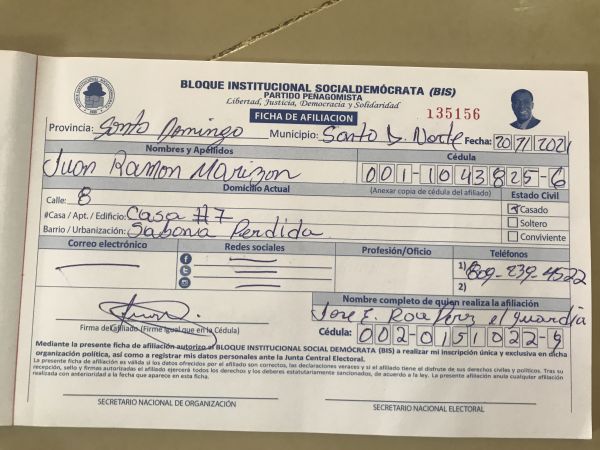 BLOQUE INSTITUCIONAL SOCIALDEMÓCRATA (BIS)
PARTIDO PEÑAGOMISTA
Libertad, Justicia, Democracia y Solidaridad
FICHA DE AFILIACION
135156
Provincia: Santo Domingo Municipio: Santo D. Norte Fecha: 20/7/2021
Nombres y Apellidos Cédula
Juan Ramon Marizon 001-1043825-6
Domicilio Actual (Anexar copia de cédula del afiliado) Estado Civil
Calle: 8 Casado
#Casa / Apt. / Edificio: Casa #7 Soltero
Barrio / Urbanización: Sabana Perdida Conviviente
Correo electrónico Redes sociales Profesión/Oficio Teléfonos
1) 809-239-4522
2)
Nombre completo de quien realiza la afiliación
Jose E. Roa Perez el guardia
Firma del afiliado (Firme igual que en la Cédula) Cédula: 002-0151022-9
Mediante la presente ficha de afiliación autorizo al BLOQUE INSTITUCIONAL SOCIAL DEMÓCRATA (BIS) a realizar mi inscripción única y exclusiva en dicha
organización política, así como a registrar mis datos personales ante la Junta Central Electoral.
La presente ficha de afiliación es valida si los datos ofrecidos por el afiliado son correctos, las declaraciones veraces y si el afiliado tiene el disfrute de sus derechos civiles y políticos. Tras su
recepción, sello y firmas autorizadas el afiliado ejercerá todos los derechos y los deberes estatutariamente sancionados, de acuerdo a la ley. La presente afiliación anula cualquier afiliación
realizada con anterioridad a la fecha que aparece en esta ficha.
SECRETARIO NACIONAL DE ORGANIZACIÓN SECRETARIO NACIONAL ELECTORAL